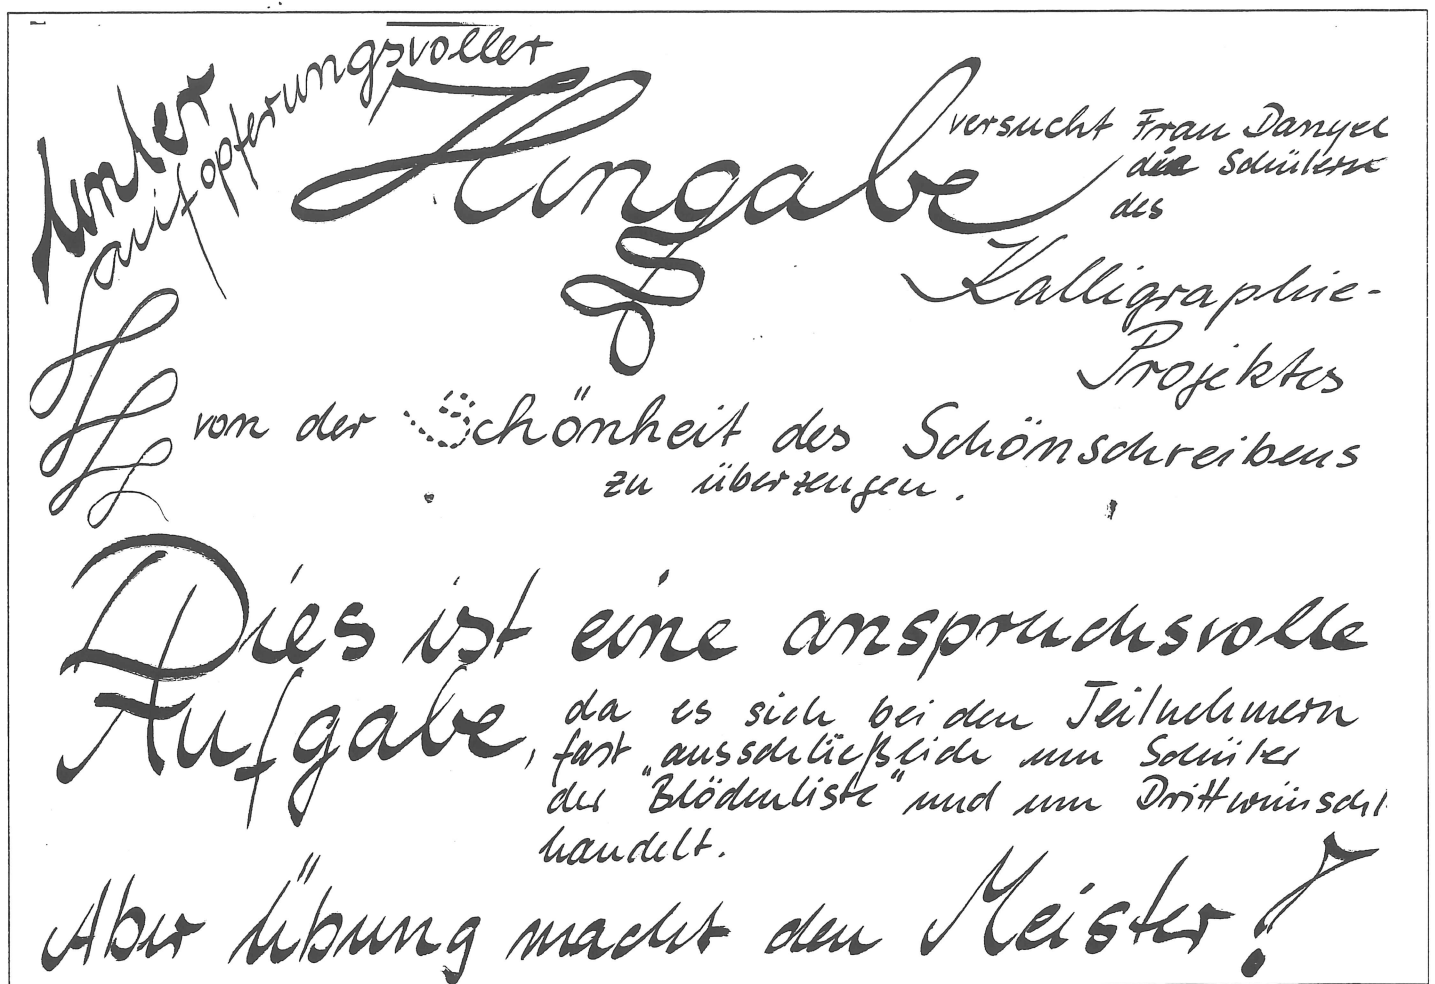 Unter
aufopferungsvoller
Hingabe
versucht Frau Danyel
die Schülern
des
Kalligraphie-
Projektes
von der Schönheit des Schönschreibens
zu überzeugen.
Dies ist eine anspruchsvolle
Aufgabe,
da es sich bei den Teilnehmern
fast ausschließlich um Schüler
der "Blödenliste" und um Drittwünschl
handelt.
Aber Übung macht den Meister!